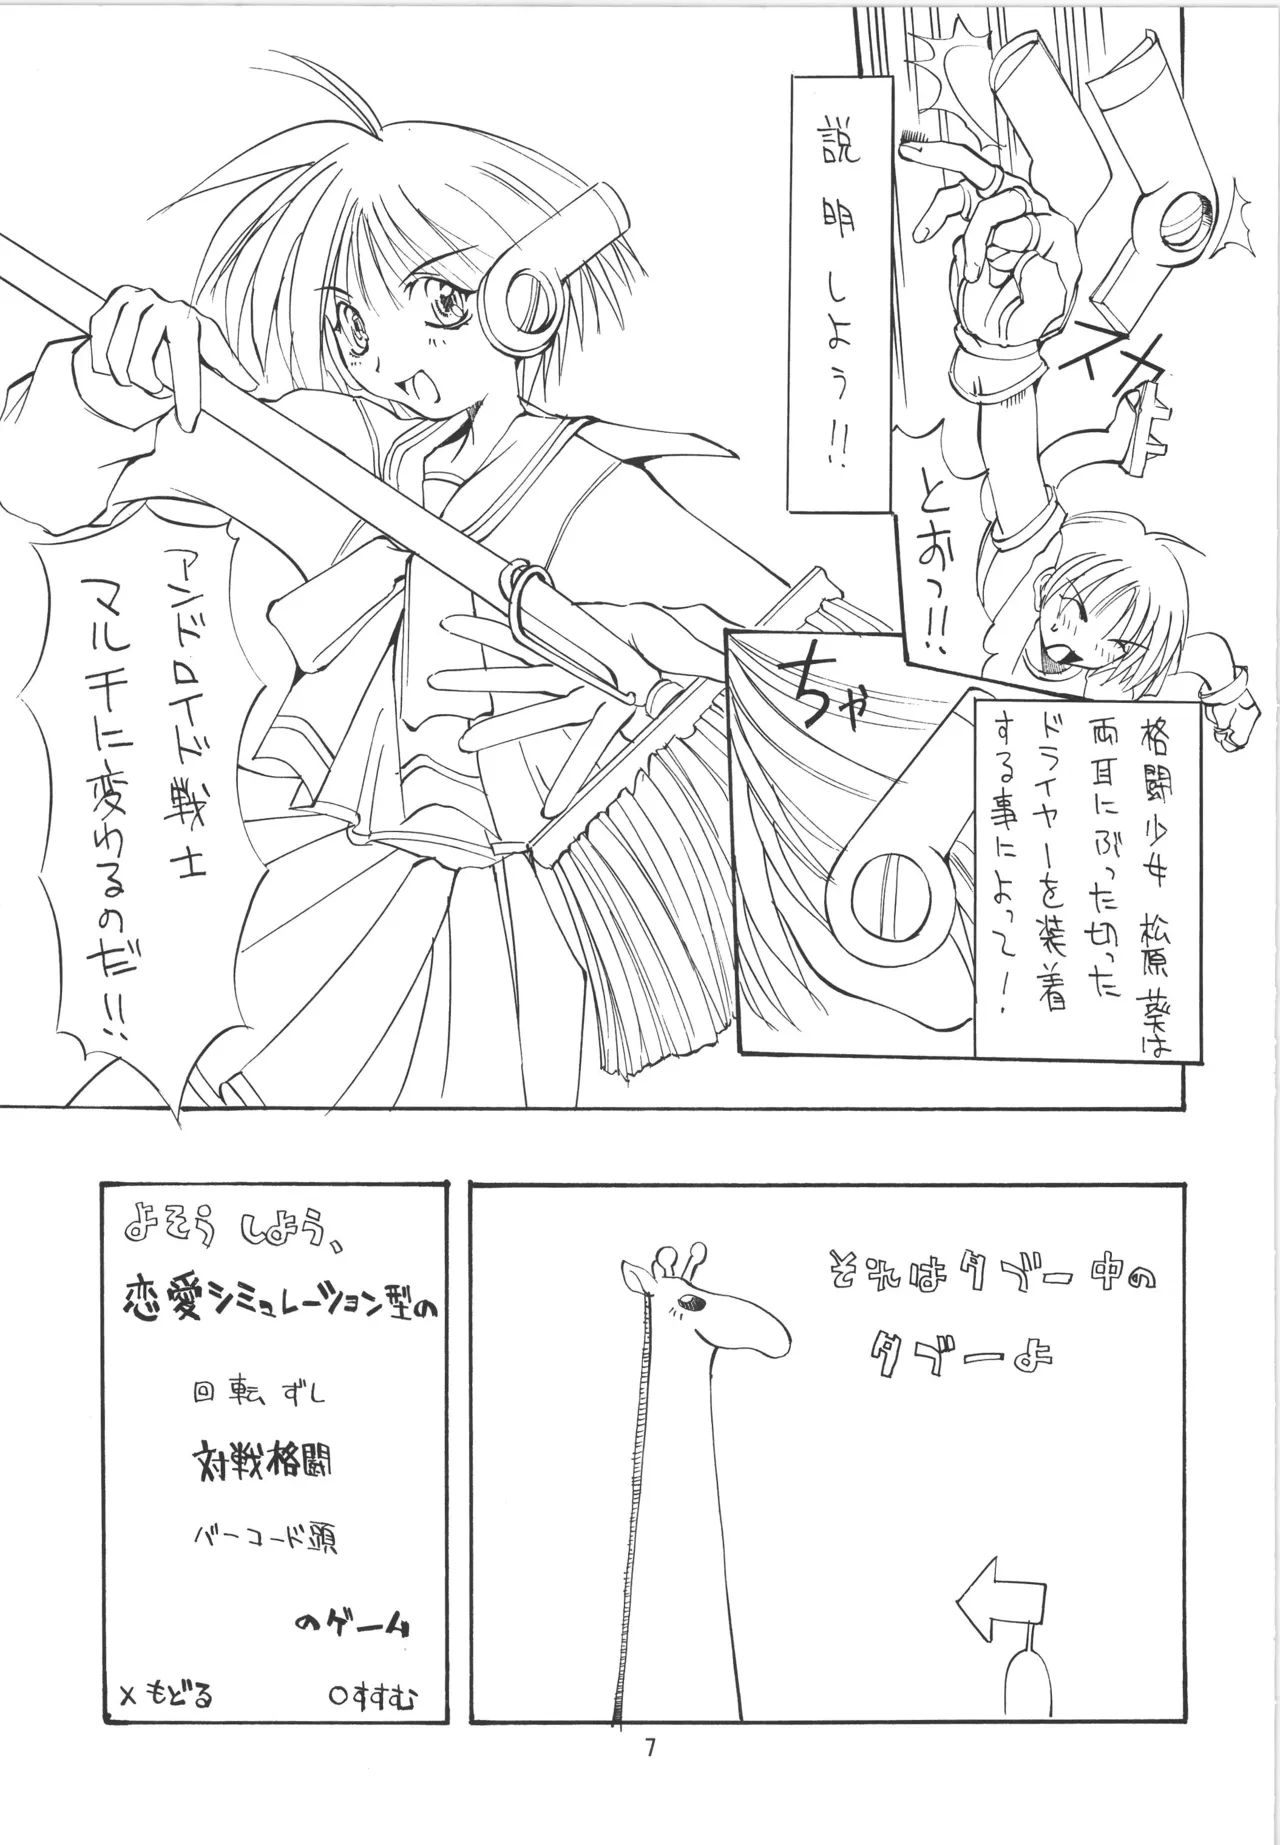 説明しよう!!
とおっ!!
格闘少女 松原葵は
両耳にぶった切った
ドライヤーを装着
する事によって!
ちゃ
アンドロイド戦士
マルチに変わるのだ!!
それはタブー中の
タブーよ
よそうしよう、
恋愛シミュレーション型の
回転ずし
対戦格闘
バーコード頭
のゲーム
×もどる
○すすむ
7